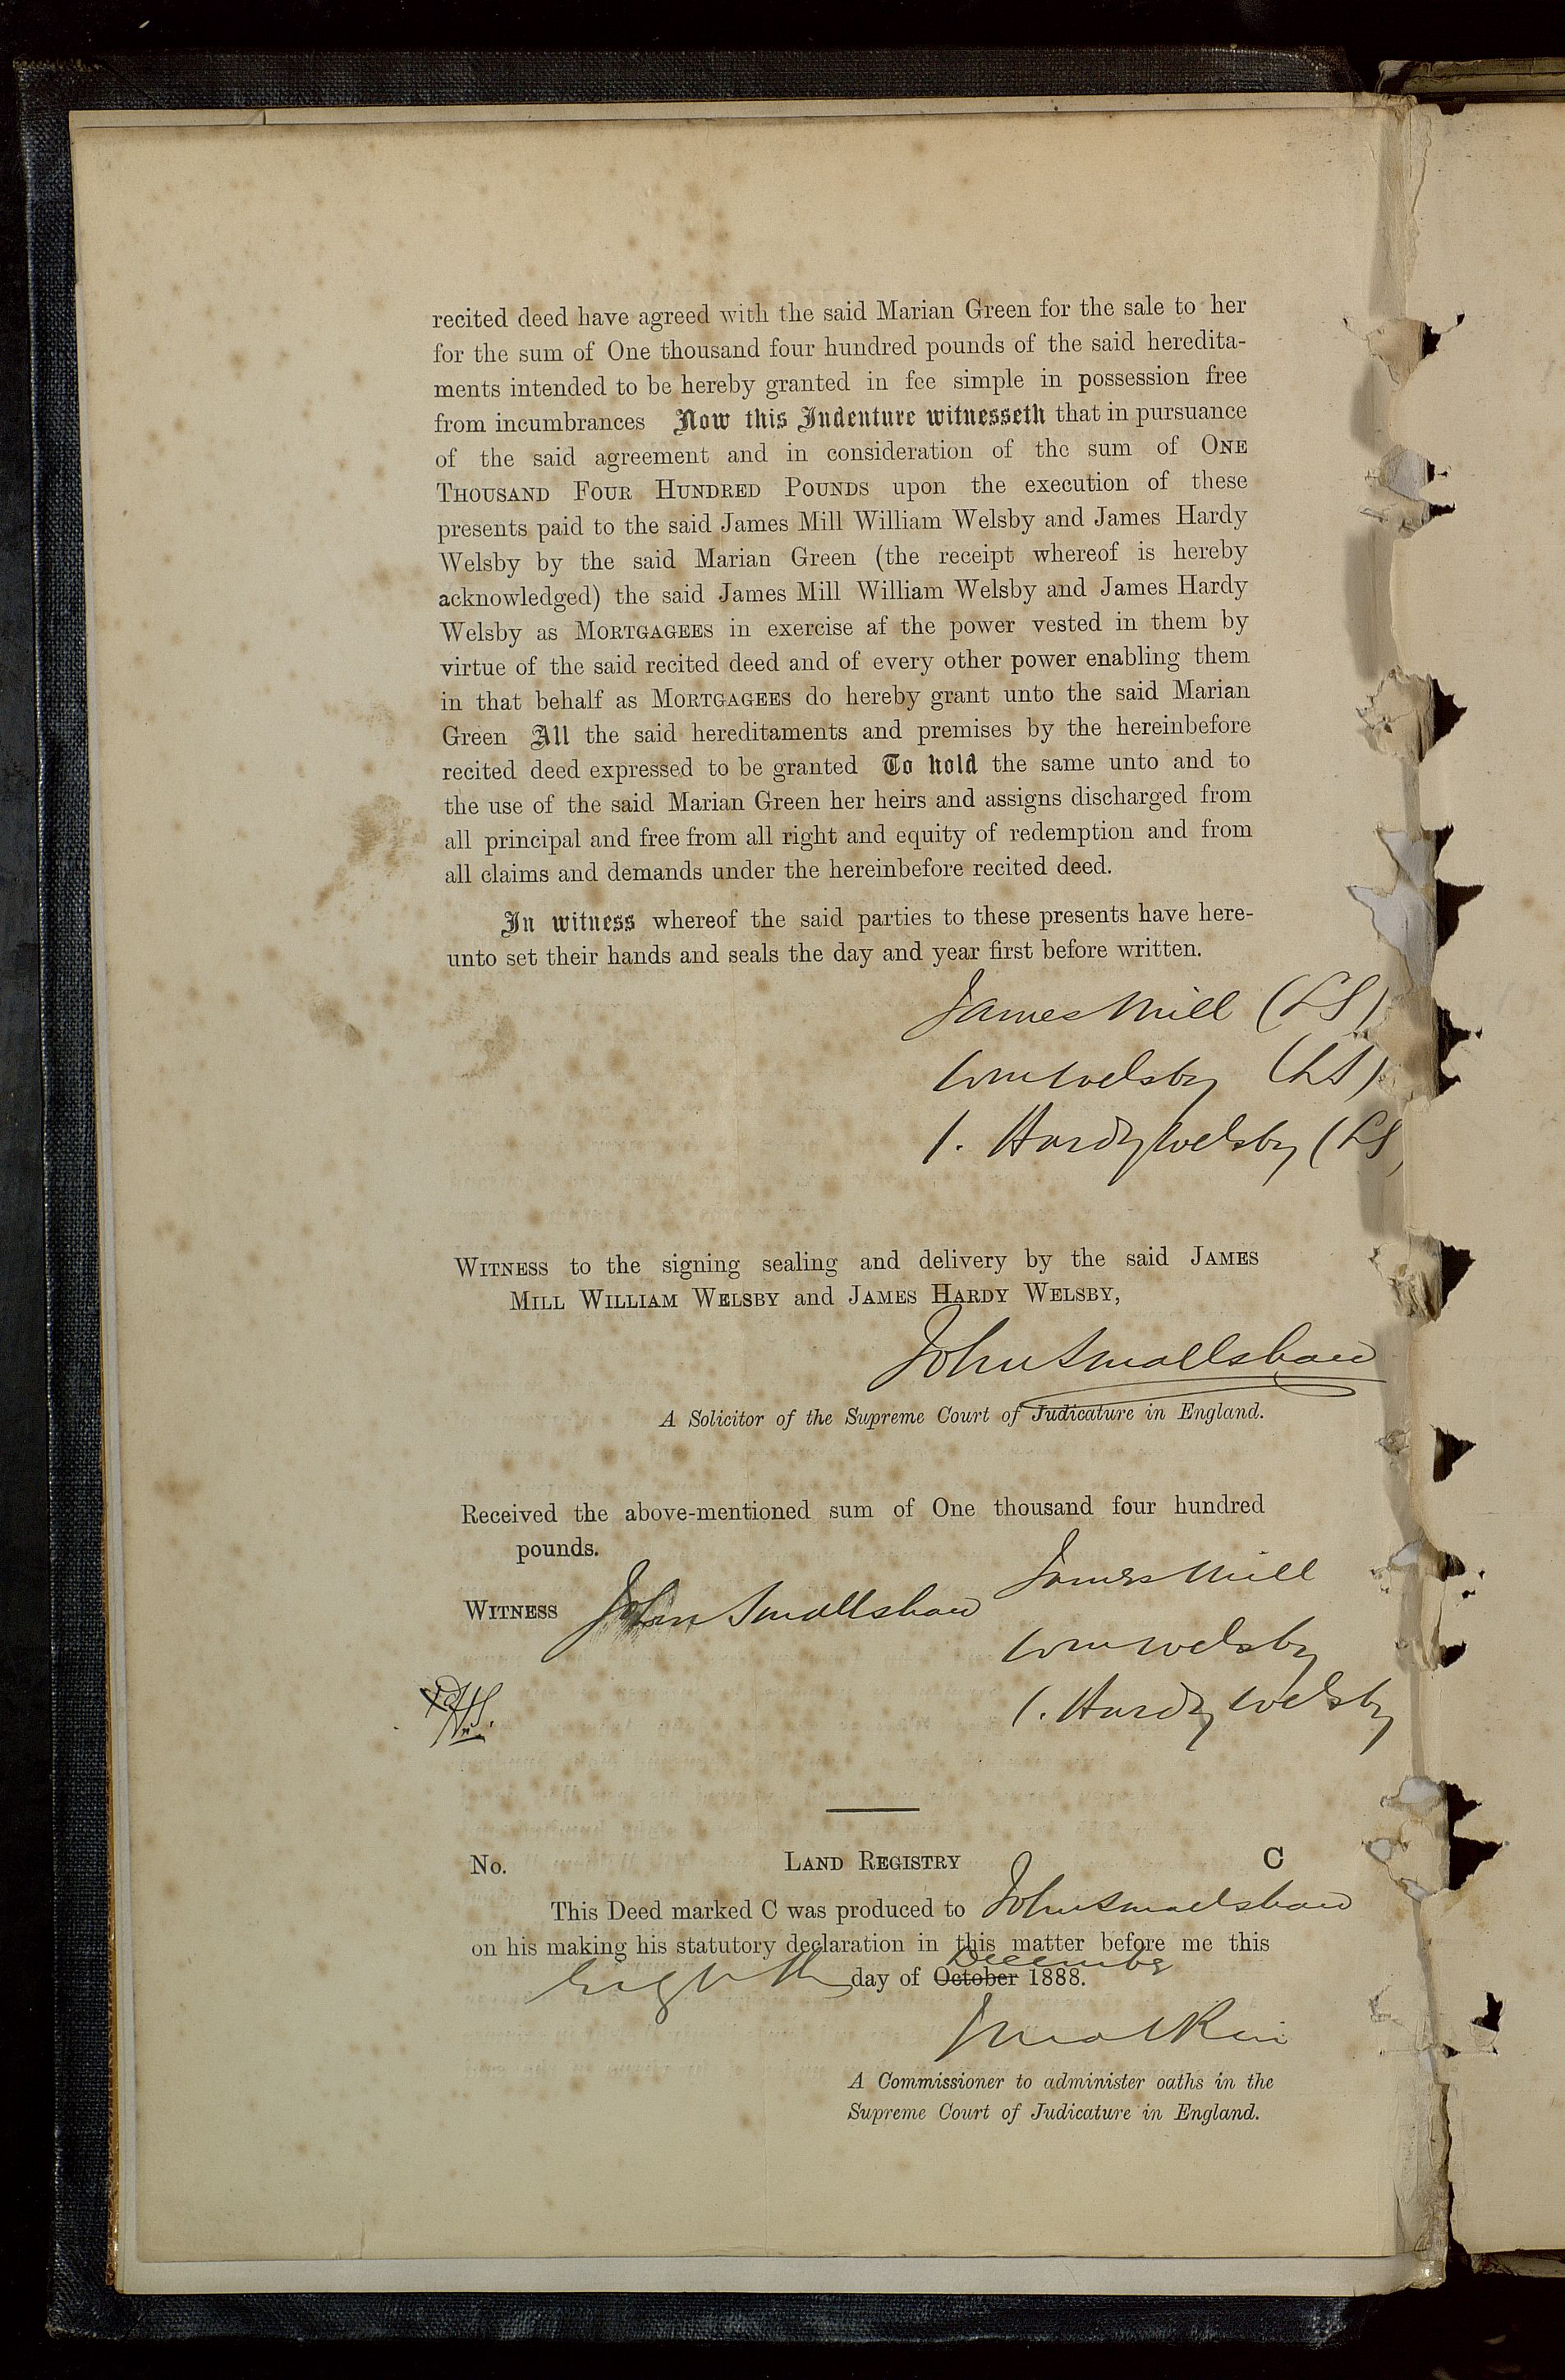 recited deed have agreed with the said Marian Green for the sale to her
for the sum of One thousand four hundred pounds of the said heredita-
ments intended to be hereby granted in fee simple in possession free
from incumbrances Now this Indenture witnesseth that in pursuance
of the said agreement and in consideration of the sum of ONE
THOUSAND FOUR HUNDRED POUNDS upon the execution of these
presents paid to the said James Mill William Welsby and James Hardy
Welsby by the said Marian Green (the receipt whereof is hereby
acknowledged) the said James Mill William Welsby and James Hardy
Welsby as MORTGAGEES in exercise af the power vested in them by
virtue of the said recited deed and of every other power enabling them
in that behalf as MORTGAGEES do hereby grant unto the said Marian
Green All the said hereditaments and premises by the hereinbefore
recited deed expressed to be granted To hold the same unto and to
the use of the said Marian Green her heirs and assigns discharged from
all principal and free from all right and equity of redemption and from
all claims and demands under the hereinbefore recited deed.
In witness whereof the said parties to these presents have here-
unto set their hands and seals the day and year first before written.
James Mill (LS)
Wm Welsby (LS)
J. Hardy Welsby (LS)
WITNESS to the signing sealing and delivery by the said JAMES
MILL WILLIAM WELSBY and JAMES HARDY WELSBY,
John Smallshaw
A Solicitor of the Supreme Court of Judicature in England.
Received the above-mentioned sum of One thousand four hundred
pounds.
James Mill
WITNESS John Smallshaw
Wm Welsby
J. Hardy Welsby
No. LAND REGISTRY C
This Deed marked C was produced to John Smallshaw
on his making his statutory declaration in this matter before me this
Eighth day of October December 1888.
A Commissioner to administer oaths in the
Supreme Court of Judicature in England.